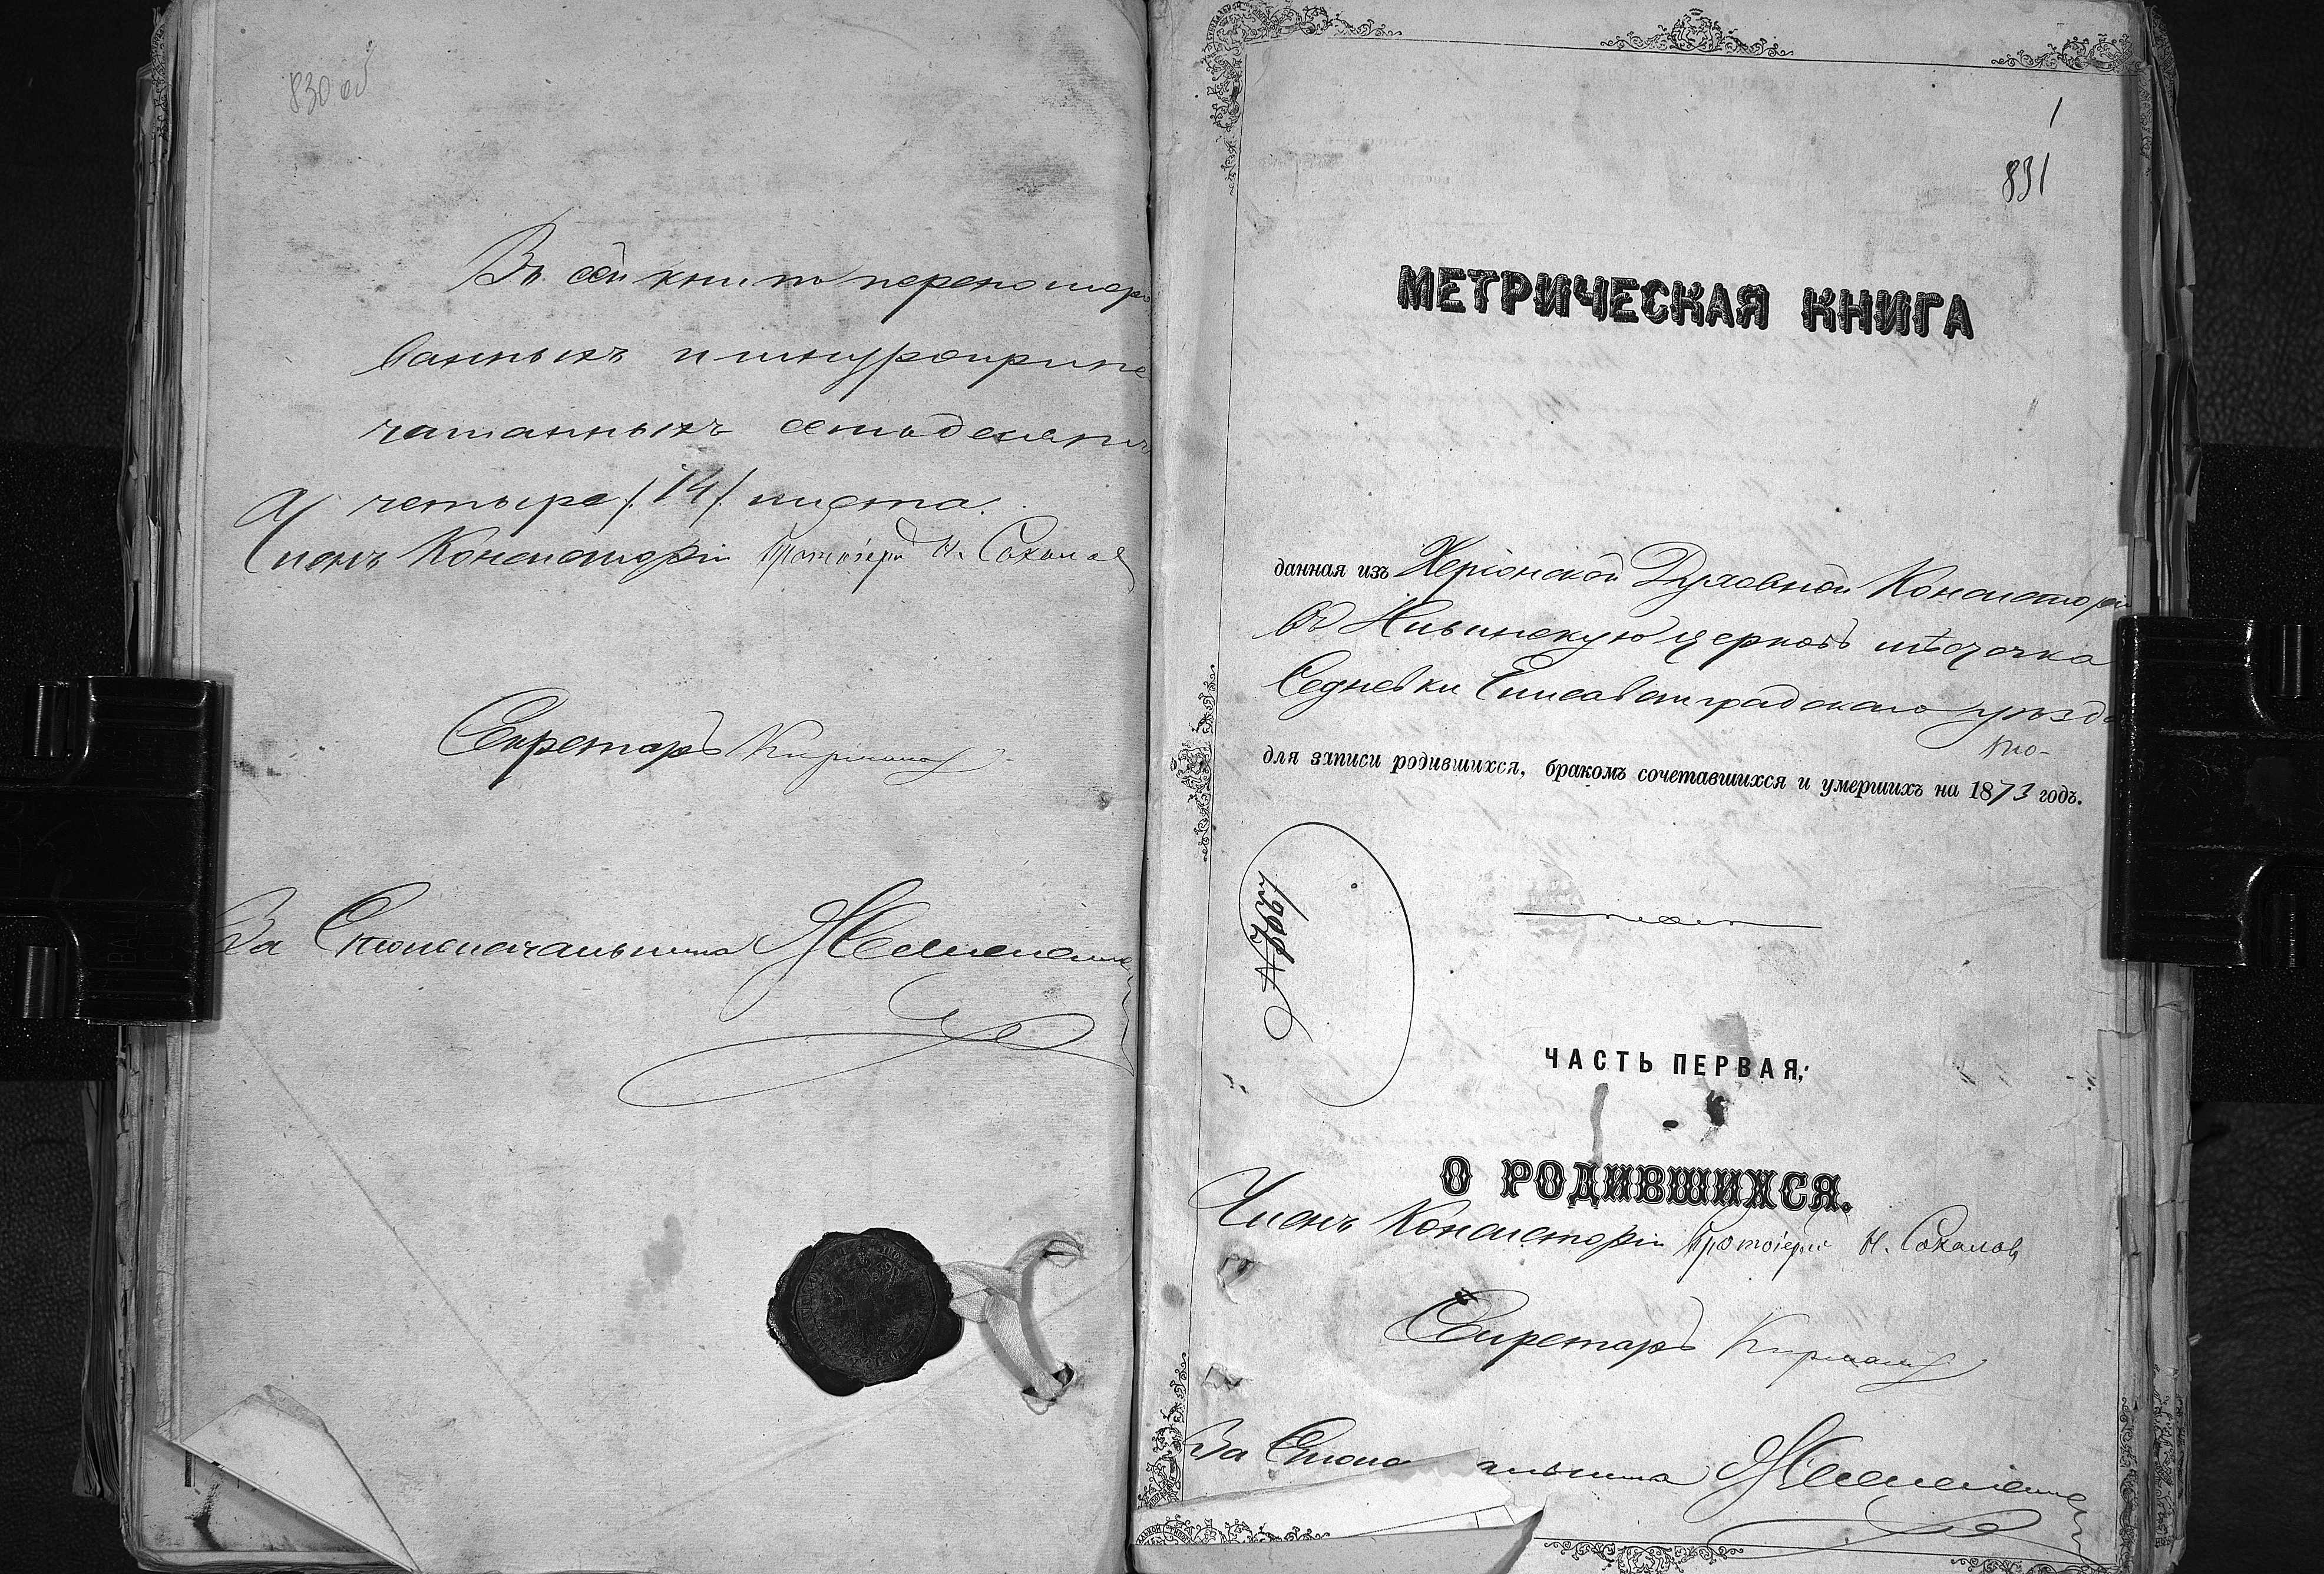 830 об
Въ сей книгѣ перенумеро
ванныхъ и шнуроприпе
чатанныхъ семьдесятъ
четыре /74/ листа.
Членъ Консисторіи Протоіерей Н. Соколов
Секретарь
За Столоначальника
1
831
МЕТРИЧЕСКАЯ КНИГА
данная изъ Херсонской Духовной Консисторіи
въ Ильинскую церковь мѣстечка
Седневки Елисаветградскаго уѣзда
для записи родившихся, бракомъ сочетавшихся и умершихъ на 1873 годъ.
ЧАСТЬ ПЕРВАЯ,
О РОДИВШИХСЯ.
Членъ Консисторіи Протоіерей Н. Соколов
Секретарь
За Столоначальника